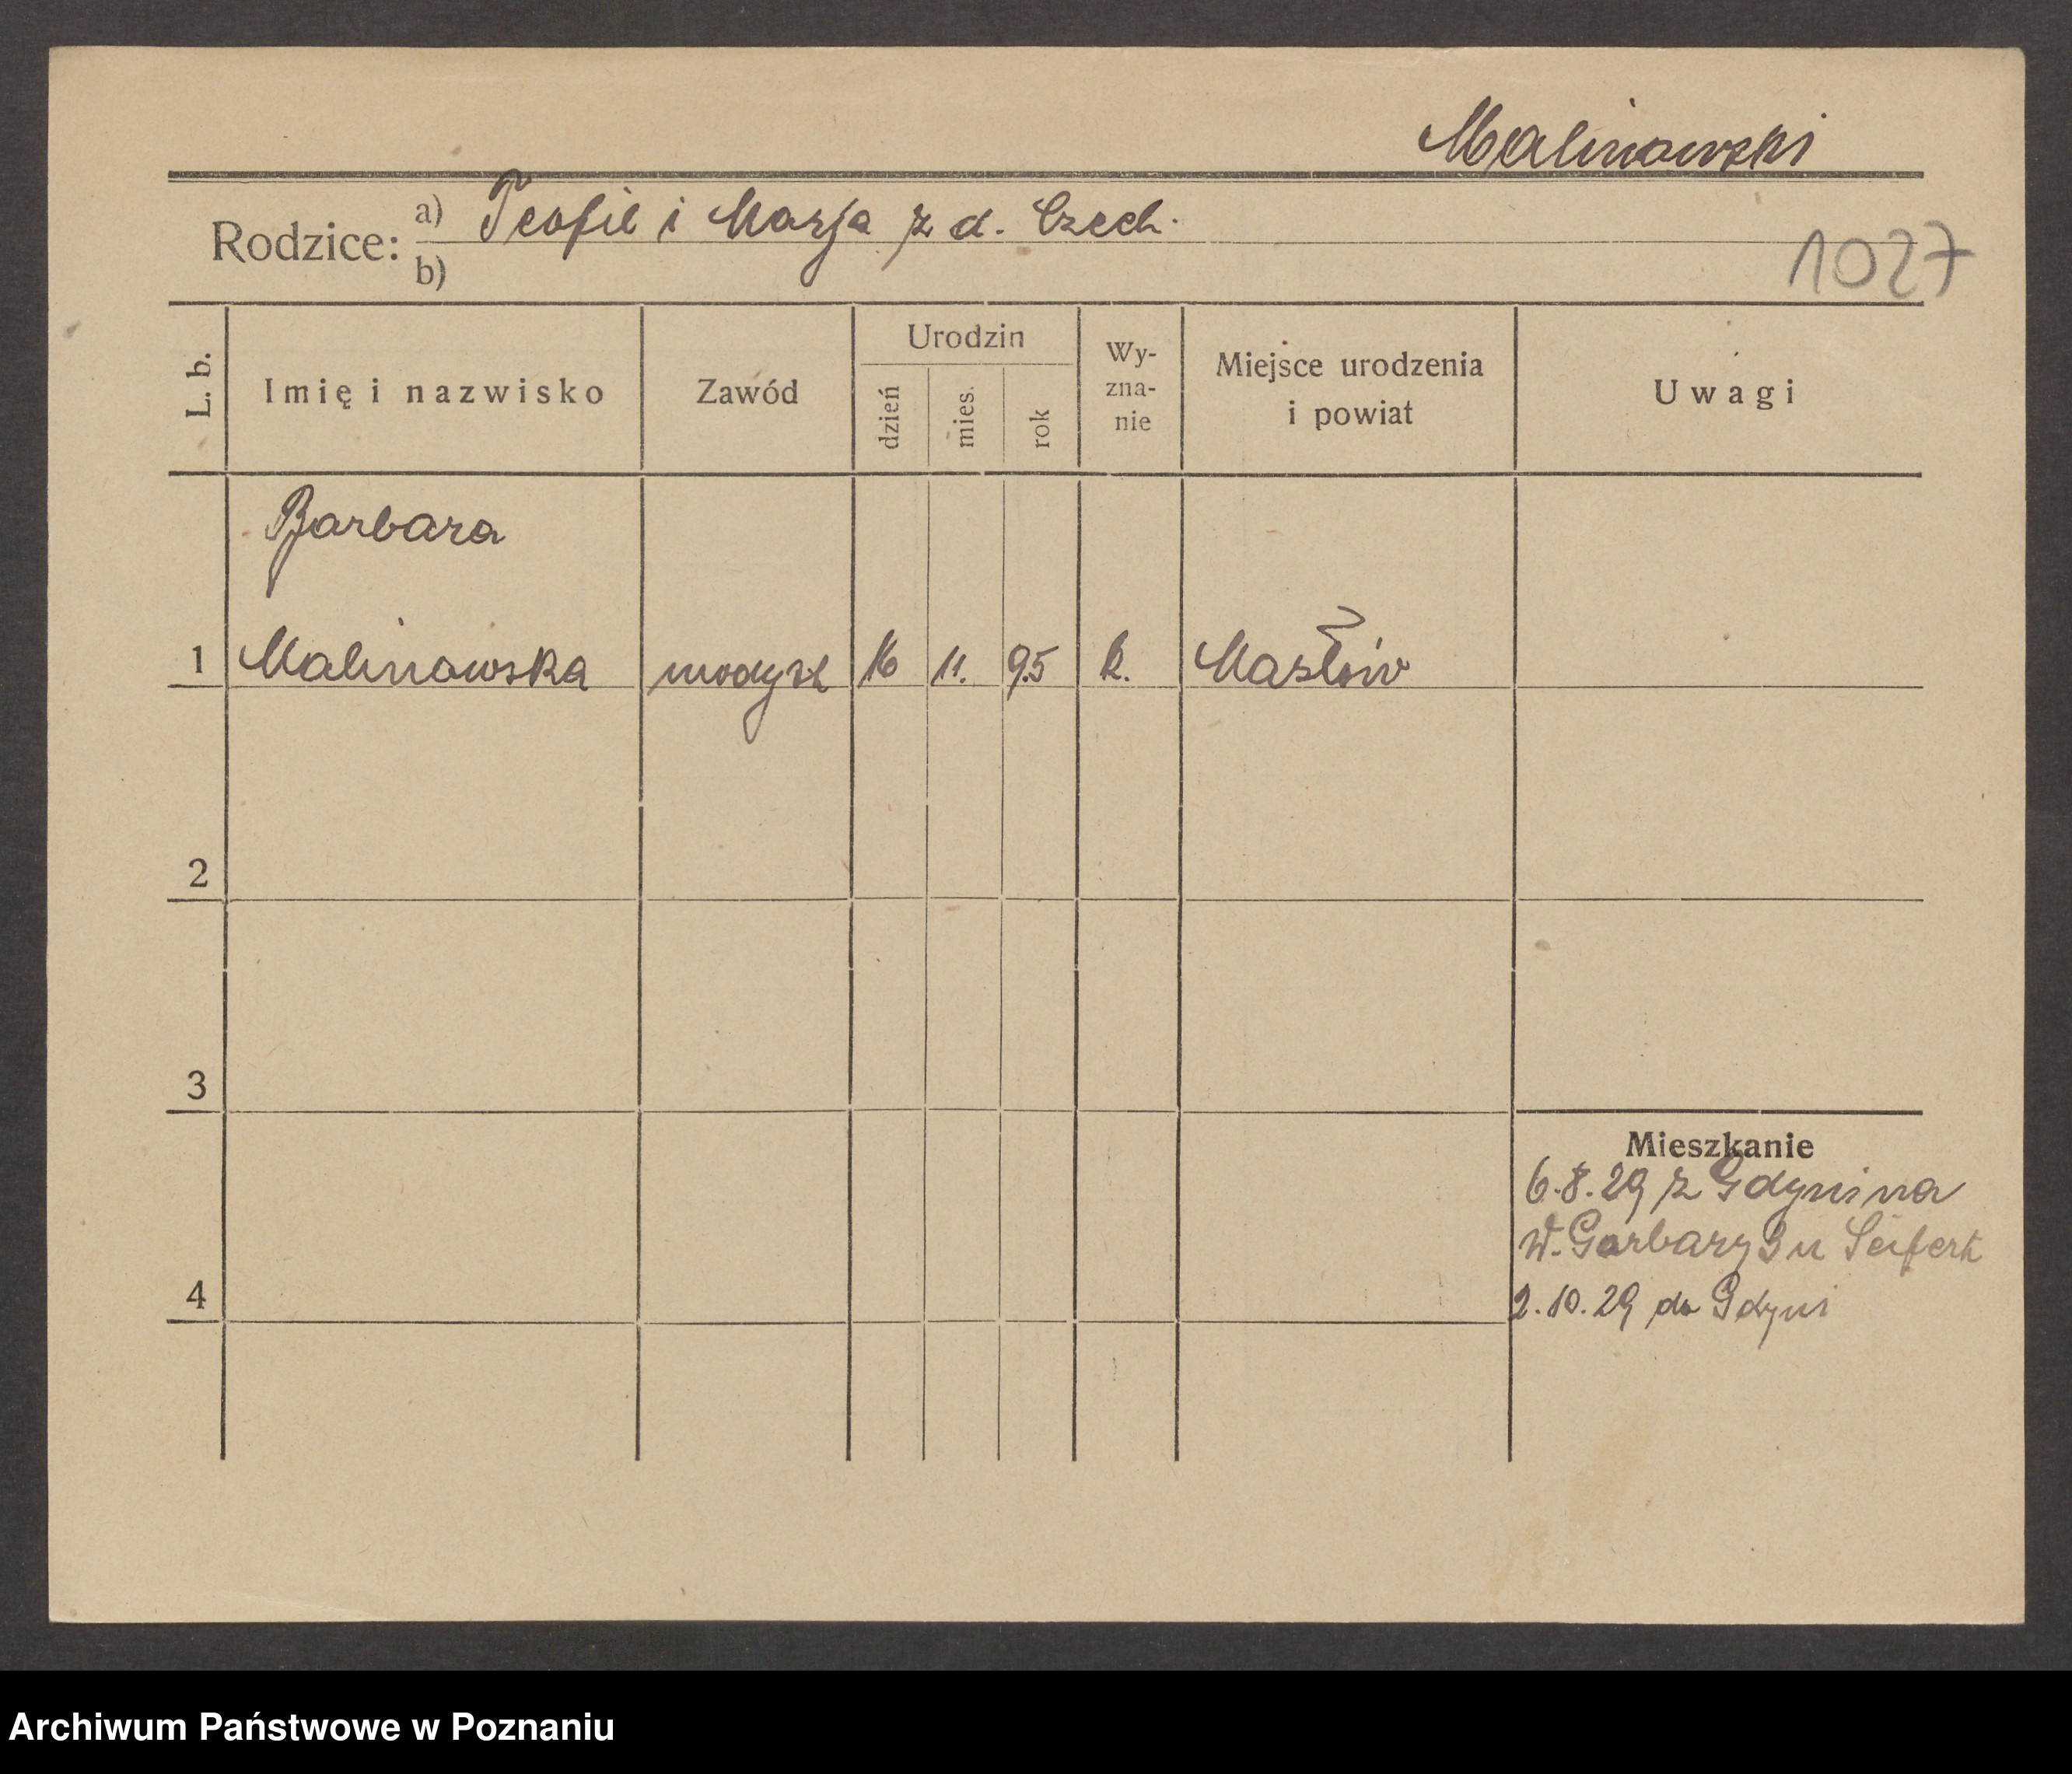 Malinowski
Rodzice: a) Teofil i Marja z d. Czech.
b)
1027
L. b.
Imię i nazwisko
Zawód
Urodzin
dzień
mies.
rok
Wy-
zna-
nie
Miejsce urodzenia
i powiat
Uwagi
Barbara
1 Malinowska modyst 16 11. 95 k. Masłów
2
3
4
Mieszkanie
6.8.29 z Gdyni na
W. Garbary 3 u Seifert
2.10.29 do Gdyni
Archiwum Państwowe w Poznaniu